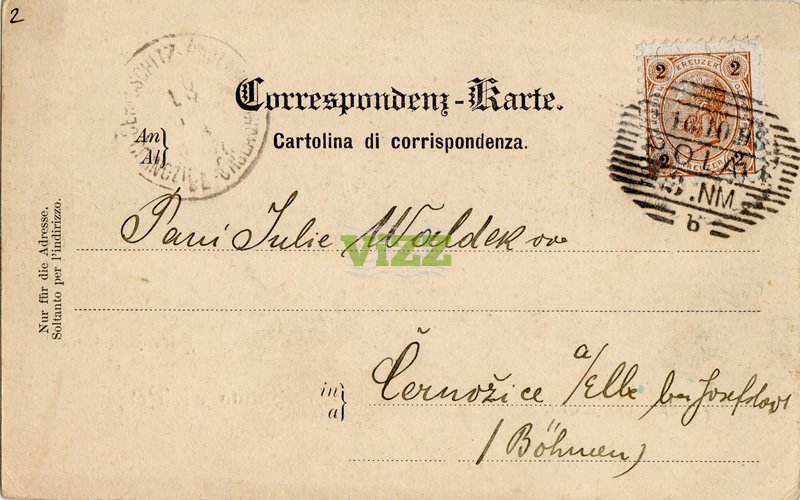 2
Correspondenz-Karte.
An
Al
Cartolina di corrispondenza.
2 KREUZER 2
2 KREUZER 2
16 10 98
POLA
3.NM.
b
Nur für die Adresse.
Soltanto per l'indirizzo.
Paní Julie Waldekova
VIZZ
in
a
Černožice a/Elbe bei Josefstadt
/Böhmen/